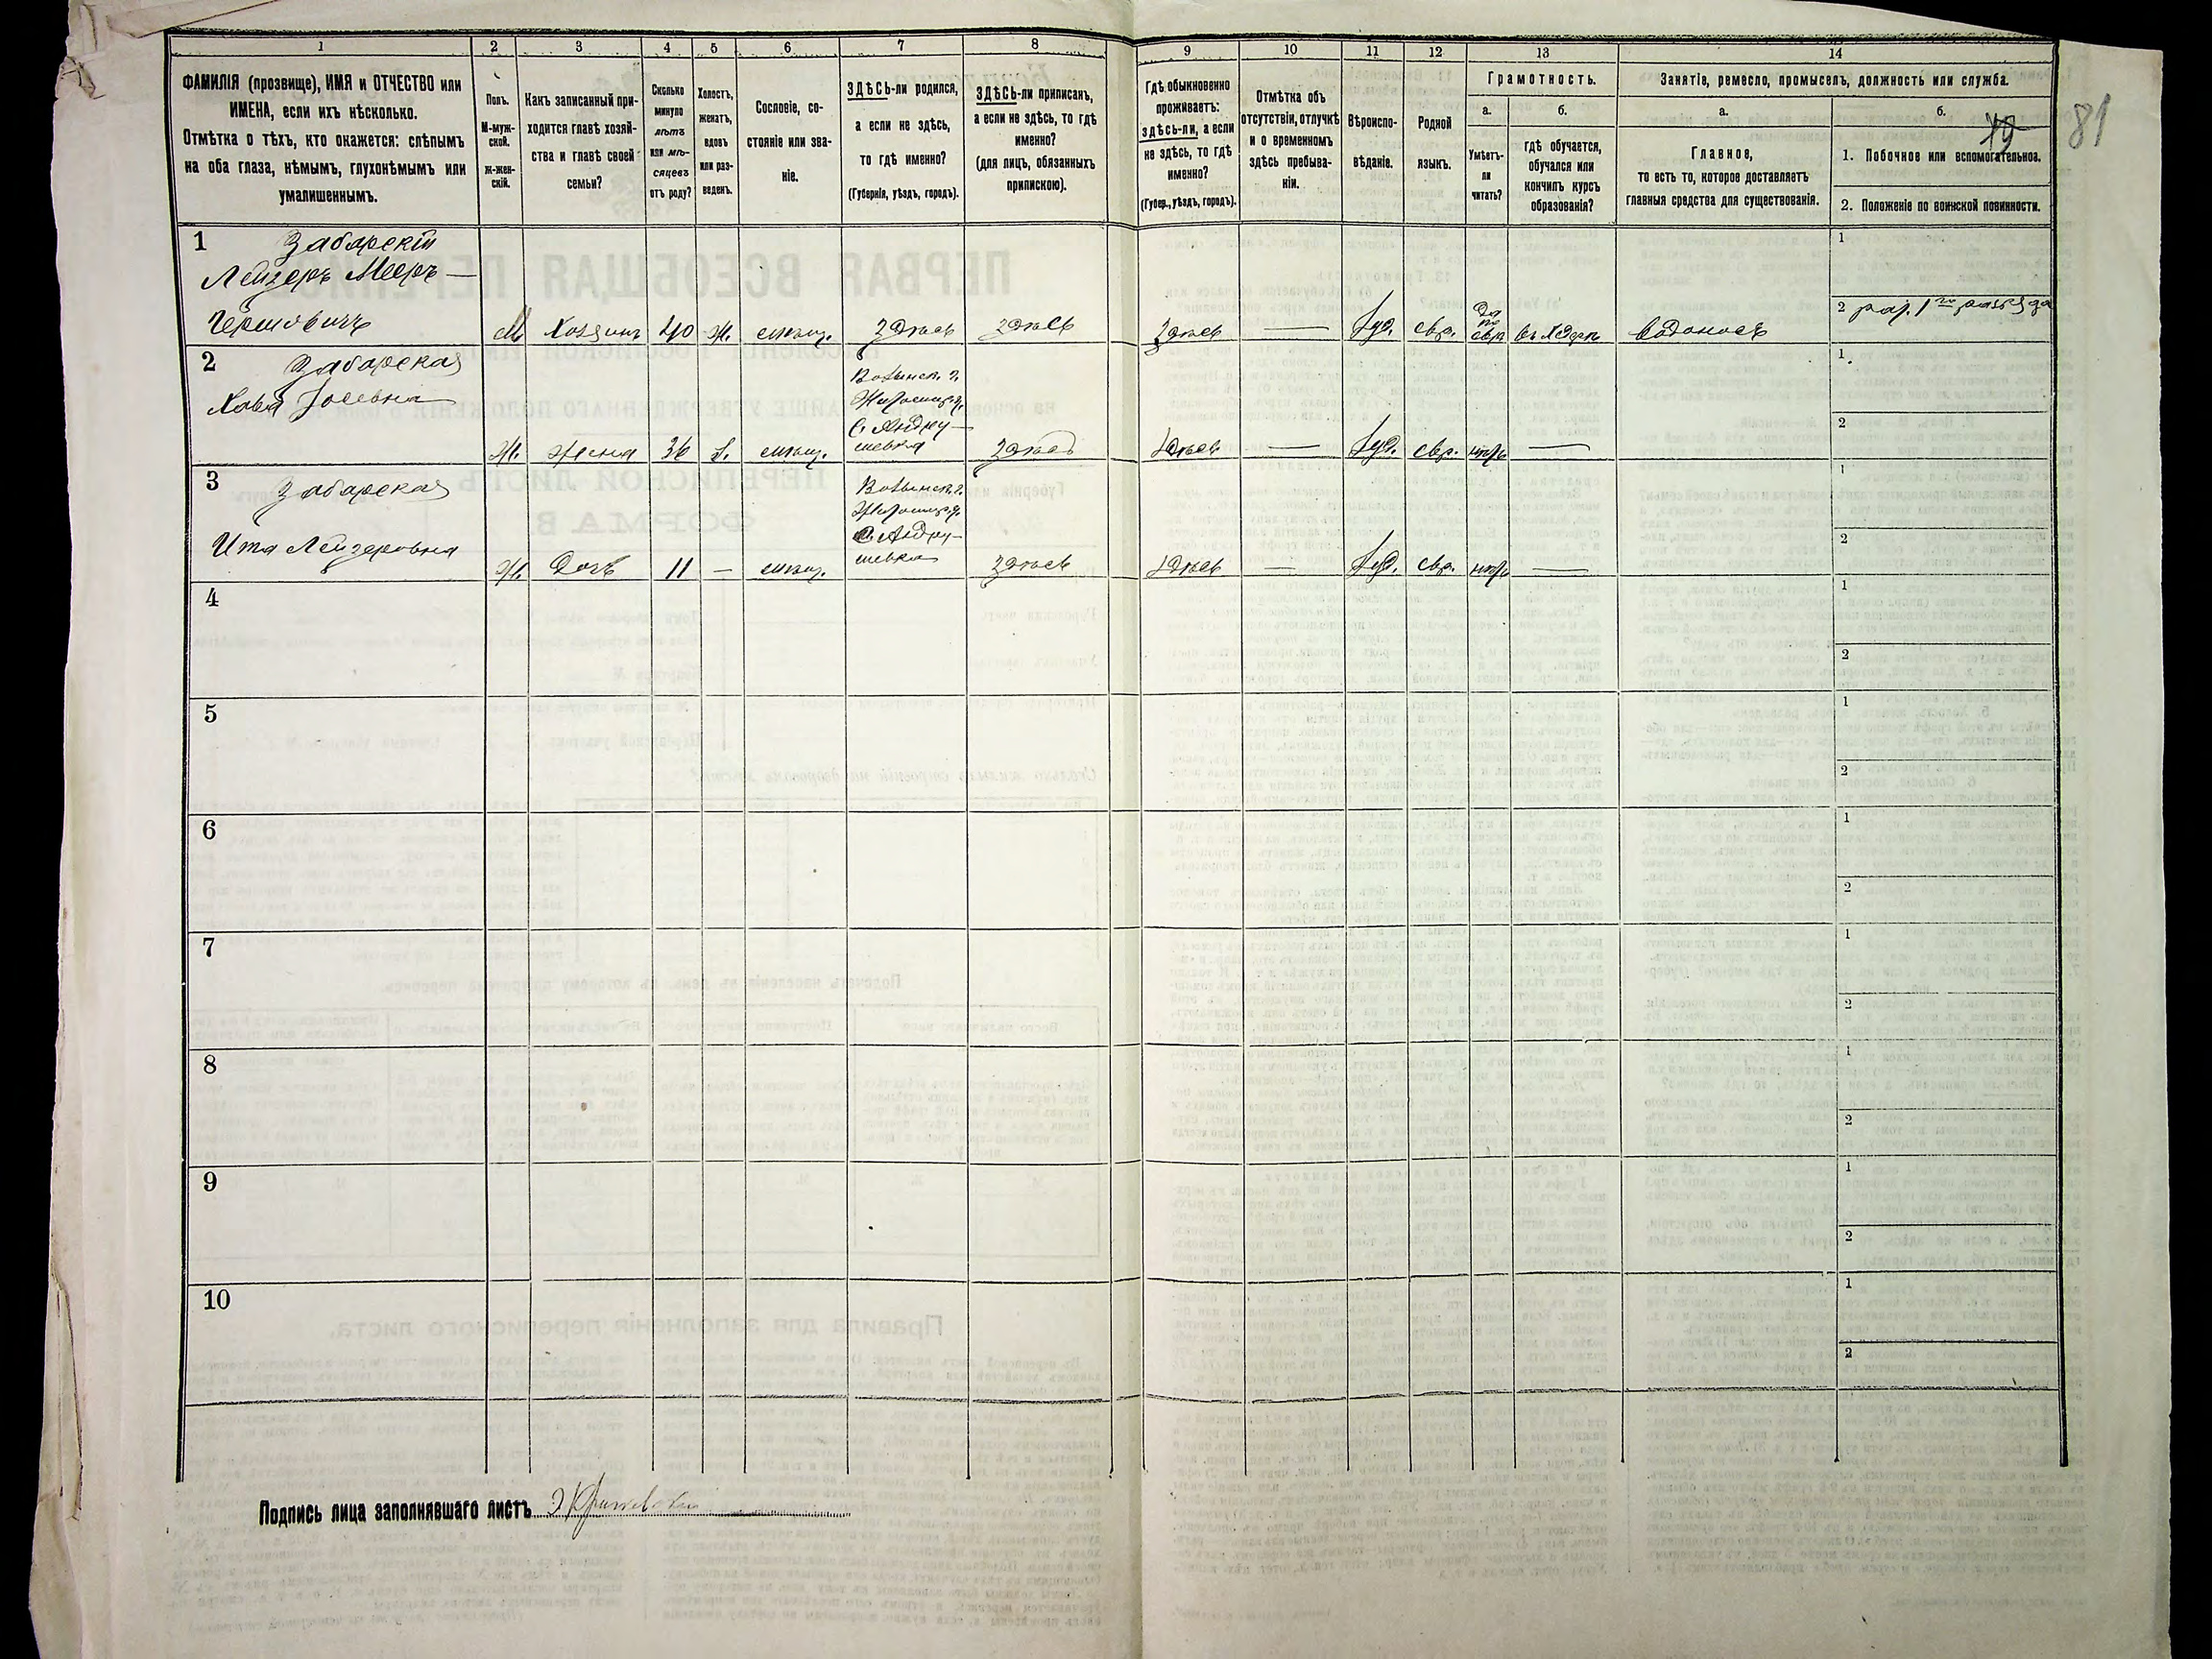 1 2 3 4 5 6 7 8 9 10 11 12 13 14
ФАМИЛІЯ (прозвище), ИМЯ и ОТЧЕСТВО или
ИМЕНА, если ихъ нѣсколько.
Отмѣтка о тѣхъ, кто окажется: слѣпымъ
на оба глаза, нѣмымъ, глухонѣмымъ или
умалишеннымъ.
Полъ.
М-муж-
ской.
Ж-жен-
скій.
Какъ записанный при-
ходится главѣ хозяй-
ства и главѣ своей
семьи?
Сколько
минуло
лѣтъ
или мѣ-
сяцевъ
отъ роду?
Холостъ,
женатъ,
вдовъ
или раз-
веденъ.
Сословіе, со-
стояніе или зва-
ніе.
ЗДѢСЬ-ли родился,
а если не здѣсь,
то гдѣ именно?
(Губернія, уѣздъ, городъ).
ЗДѢСЬ-ли приписанъ,
а если не здѣсь, то гдѣ
именно?
(для лицъ, обязанныхъ
припискою).
Гдѣ обыкновенно
проживаетъ:
здѣсь-ли, а если
не здѣсь, то гдѣ
именно?
(Губер., уѣздъ, городъ).
Отмѣтка объ
отсутствіи, отлучкѣ
и о временномъ
здѣсь пребыва-
ніи.
Вѣроиспо-
вѣданіе.
Родной
языкъ.
Грамотность.
а.
Умѣетъ-
ли
читать?
б.
гдѣ обучается,
обучался или
кончилъ курсъ
образованія?
Занятіе, ремесло, промыселъ, должность или служба.
а.
Главное,
то есть то, которое доставляетъ
главныя средства для существованія.
б.
1. Побочное или вспомогательное.
2. Положеніе по воинской повинности.
81
1 Забарскій
Лейзеръ Мееръ—
Гершовичъ
М. Хозяинъ 40 Ж. мѣщ. Здѣсь Здѣсь Здѣсь — Іуд. евр. Да по евр. въ Хедерѣ Водоносъ
1
2 рат. 1го разряда
2 Забарская
Хава Іосевна
Ж. жена 36 З. мѣщ.
Волынск. г.
Житомир. у.
с. Андру—
шевка
Здѣсь Здѣсь — Іуд. евр. нѣтъ —
1
2
3 Забарская
Ита Лейзеровна
Ж. Дочь 11 — мѣщ.
Волынск. г.
Житомир. у.
с. Андру—
шевка
Здѣсь Здѣсь — Іуд. евр. нѣтъ —
1
2
4
1
2
5
1
2
6
1
2
7
1
2
8
1
2
9
1
2
10
1
2
Подпись лица заполнявшаго листъ